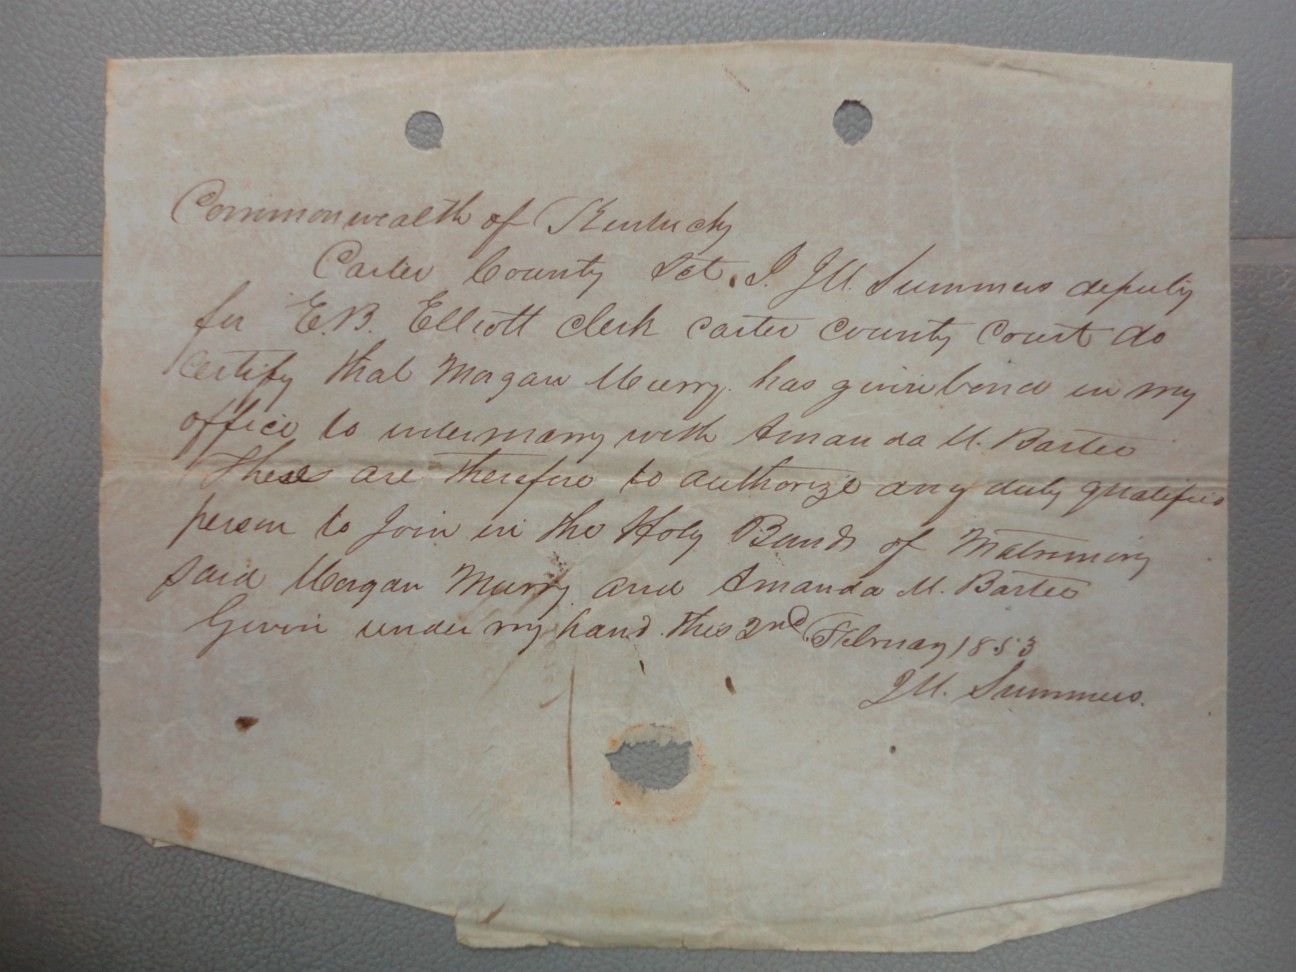 Commonwealth of Kentucky
Carter County Sct. I J.M. Summers deputy
for E.B. Elliott Clerk Carter County Court do
certify that Morgan Murry has given bond in my
office to intermarry with Amanda M. Bartee
These are therefore to authorize any duly qualified
person to Join in the Holy Bands of Matrimony
said Morgan Murry and Amanda M. Bartee
Given under my hand this 2nd February 1853
J.M. Summers.